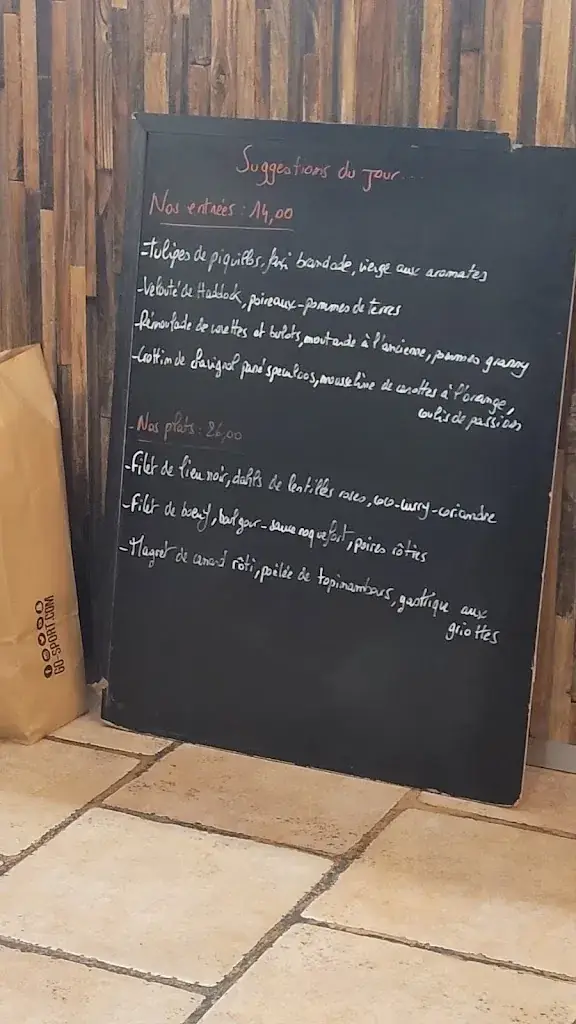 Suggestions du jour...
Nos entrées : 14,00
-Tulipes de piquillos, farci brandade, vierge aux aromates
-Velouté de Haddock, poireaux-pommes de terres
-Rémoulade de crevettes et bulots, moutarde à l'ancienne, pommes granny
-Crottin de chavignol pané speculoos, mousseline de carottes à l'orange,
coulis de passion
-Nos plats : 26,00
-Filet de lieu noir, dahls de lentilles roses, coco-curry-coriandre
-Filet de boeuf, boulgour-sauce roquefort, poires rôties
-Magret de canard rôti, poêlée de topinambours, gastrique aux
griottes
GO-SPORT.COM